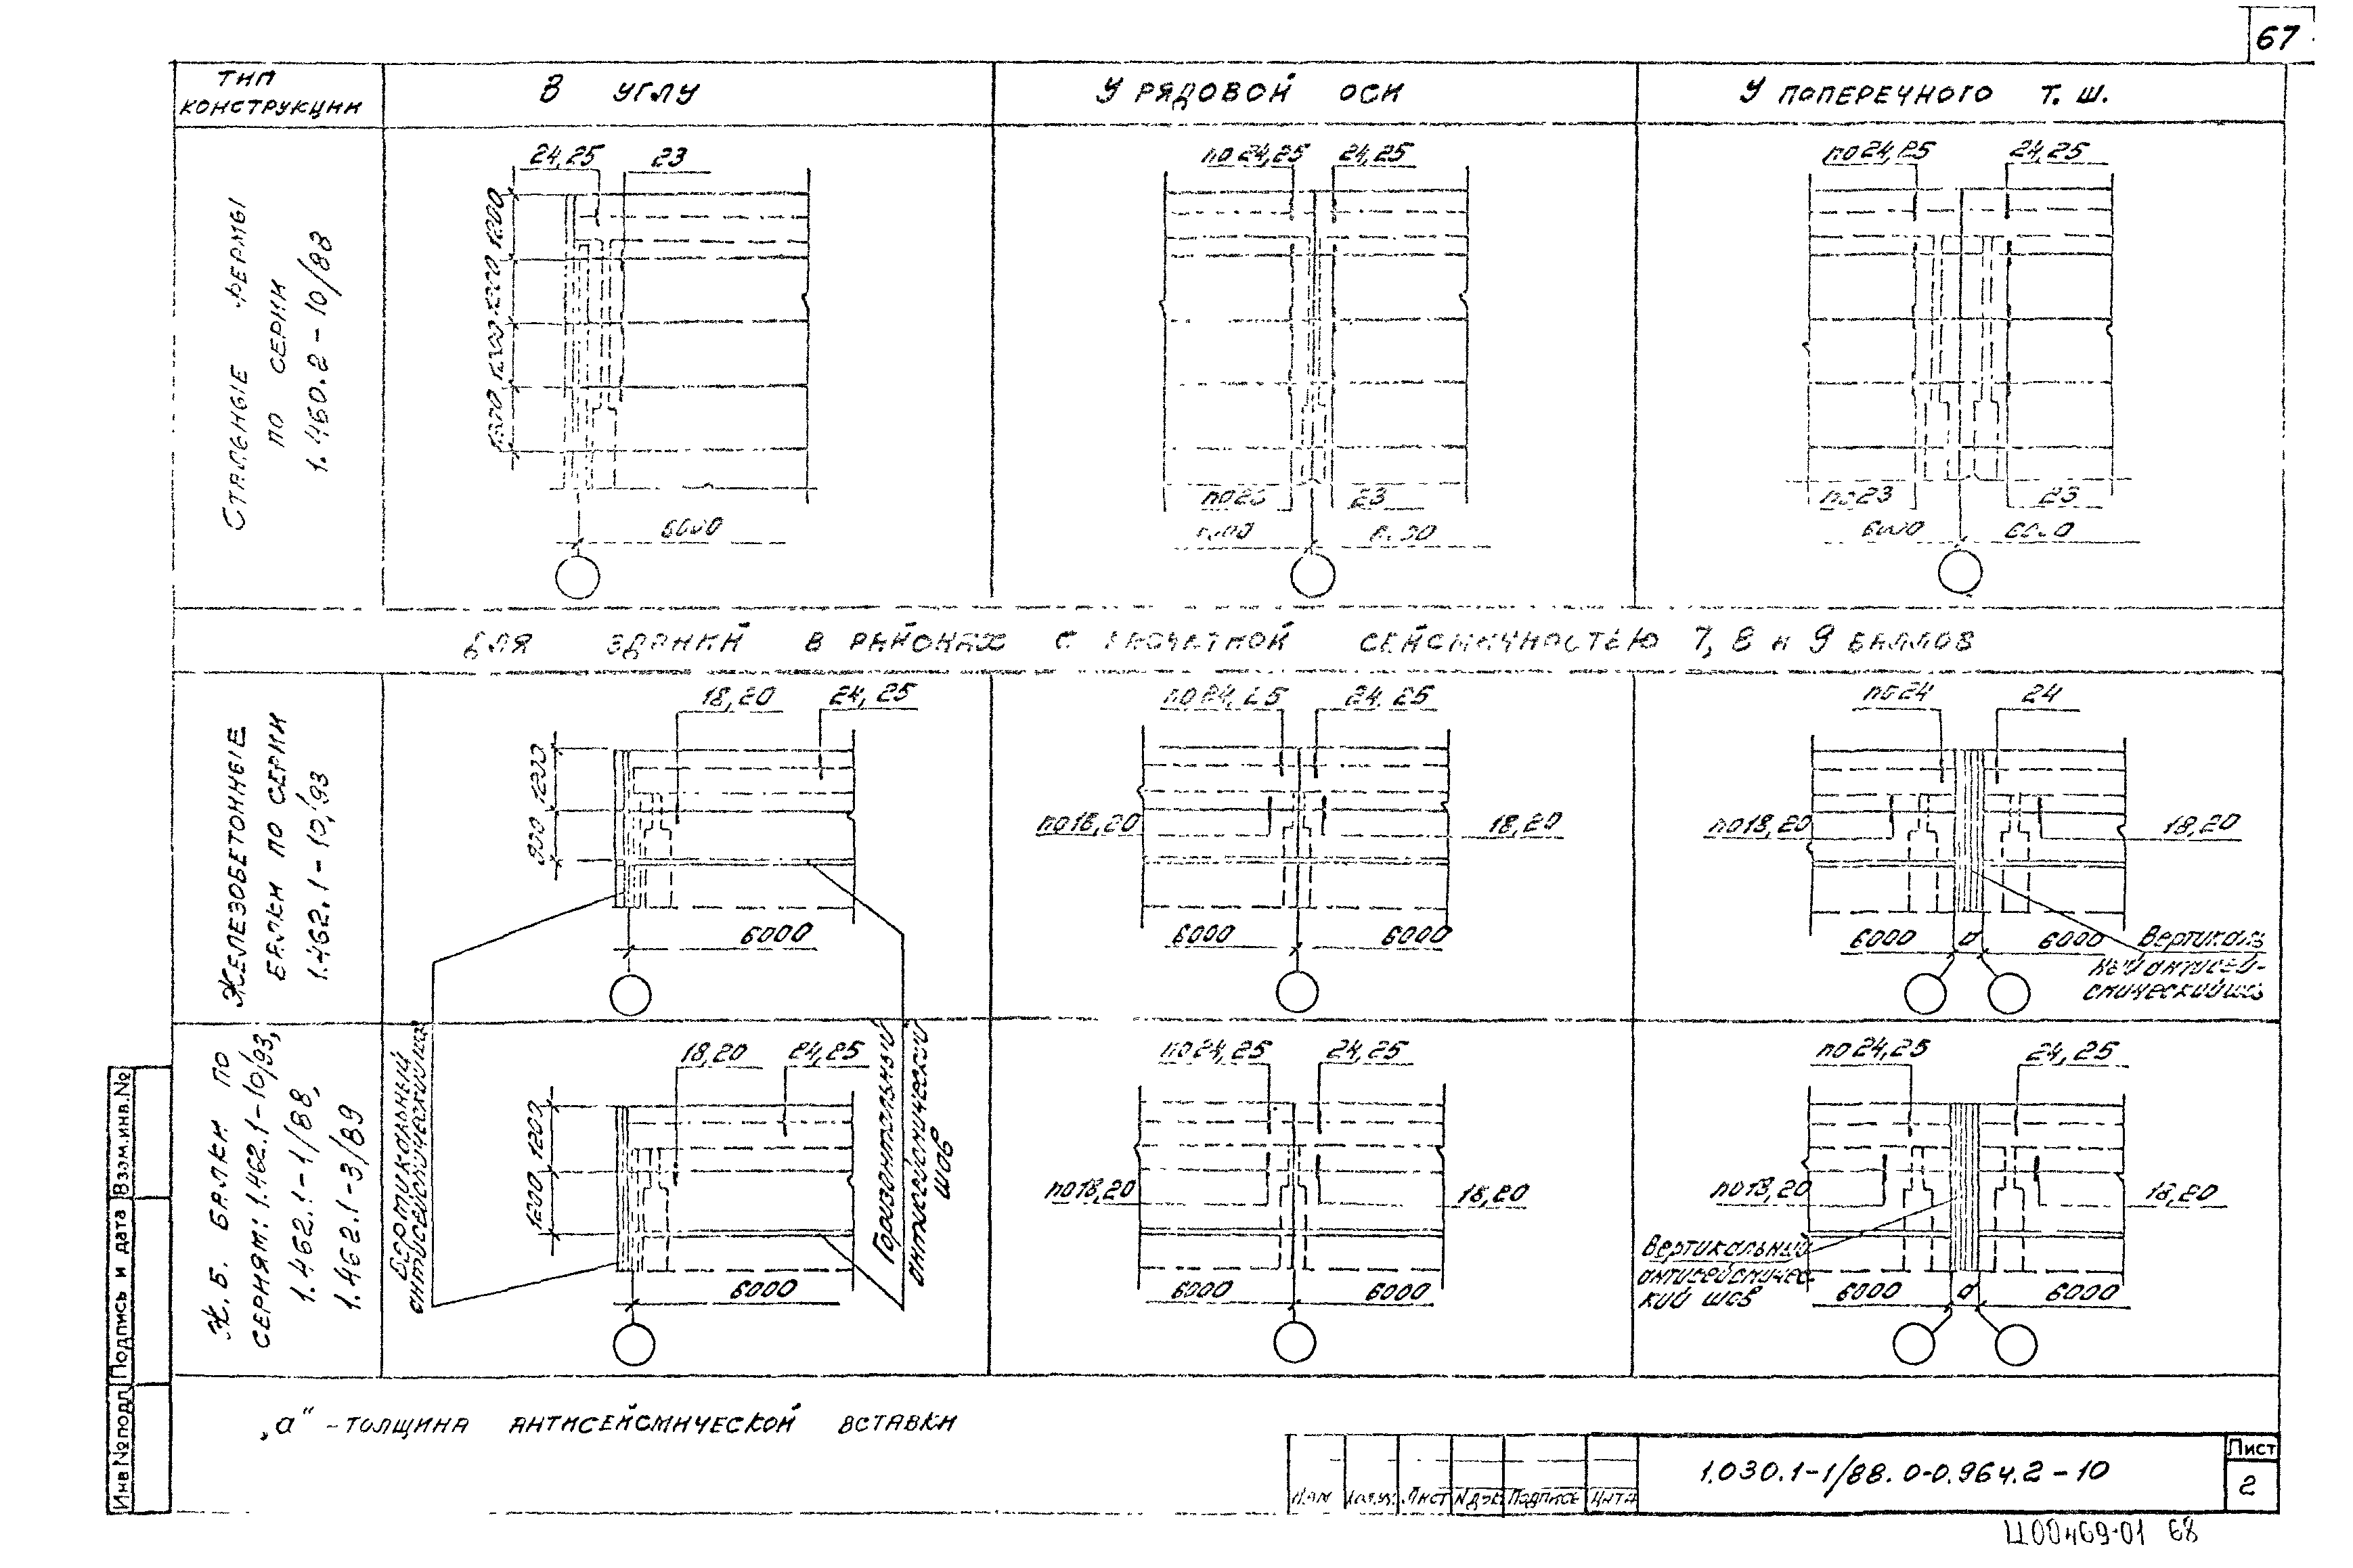 67
ТИП
КОНСТРУКЦИИ
В УГЛУ
У РЯДОВОЙ ОСИ
У ПОПЕРЕЧНОГО Т. Ш.
СТАЛЬНЫЕ ФЕРМЫ
ПО СЕРИИ
1.460.2-10/88
24,25
23
1200
1200
6000
по 24,25
24,25
23
по 24,25
24,25
по 23
23
6000
6000
ДЛЯ ЗДАНИЙ В РАЙОНАХ С РАСЧЕТНОЙ СЕЙСМИЧНОСТЬЮ 7, 8 И 9 БАЛЛОВ
ЖЕЛЕЗОБЕТОННЫЕ
БАЛКИ ПО СЕРИИ
1.462.1-10/93
18,20
24,25
1200
900
6000
24,25
по 18,20
18,20
6000
6000
по 24
24
по 18,20
18,20
6000
а
6000
Вертикаль
ный антисей-
смический шов
Ж.Б. БАЛКИ ПО
СЕРИЯМ: 1.462.1-10/93,
1.462.1-1/88,
1.462.1-3/89
Вертикальный
антисейсмический шов
18,20
24,25
1200
1200
6000
Горизонтальный
антисейсмический
шов
по 24,25
24,25
по 18,20
18,20
6000
6000
по 24,25
24,25
по 18,20
18,20
Вертикальный
антисейсмичес-
кий шов
6000
а
6000
„а" - ТОЛЩИНА АНТИСЕЙСМИЧЕСКОЙ ВСТАВКИ
Взам.инв.№
Подпись и дата
Инв № подл
Лист
N док
Подпись
Дата
1.030.1-1/88.0-0.964.2-10
Лист
2
Ц00469-01 68